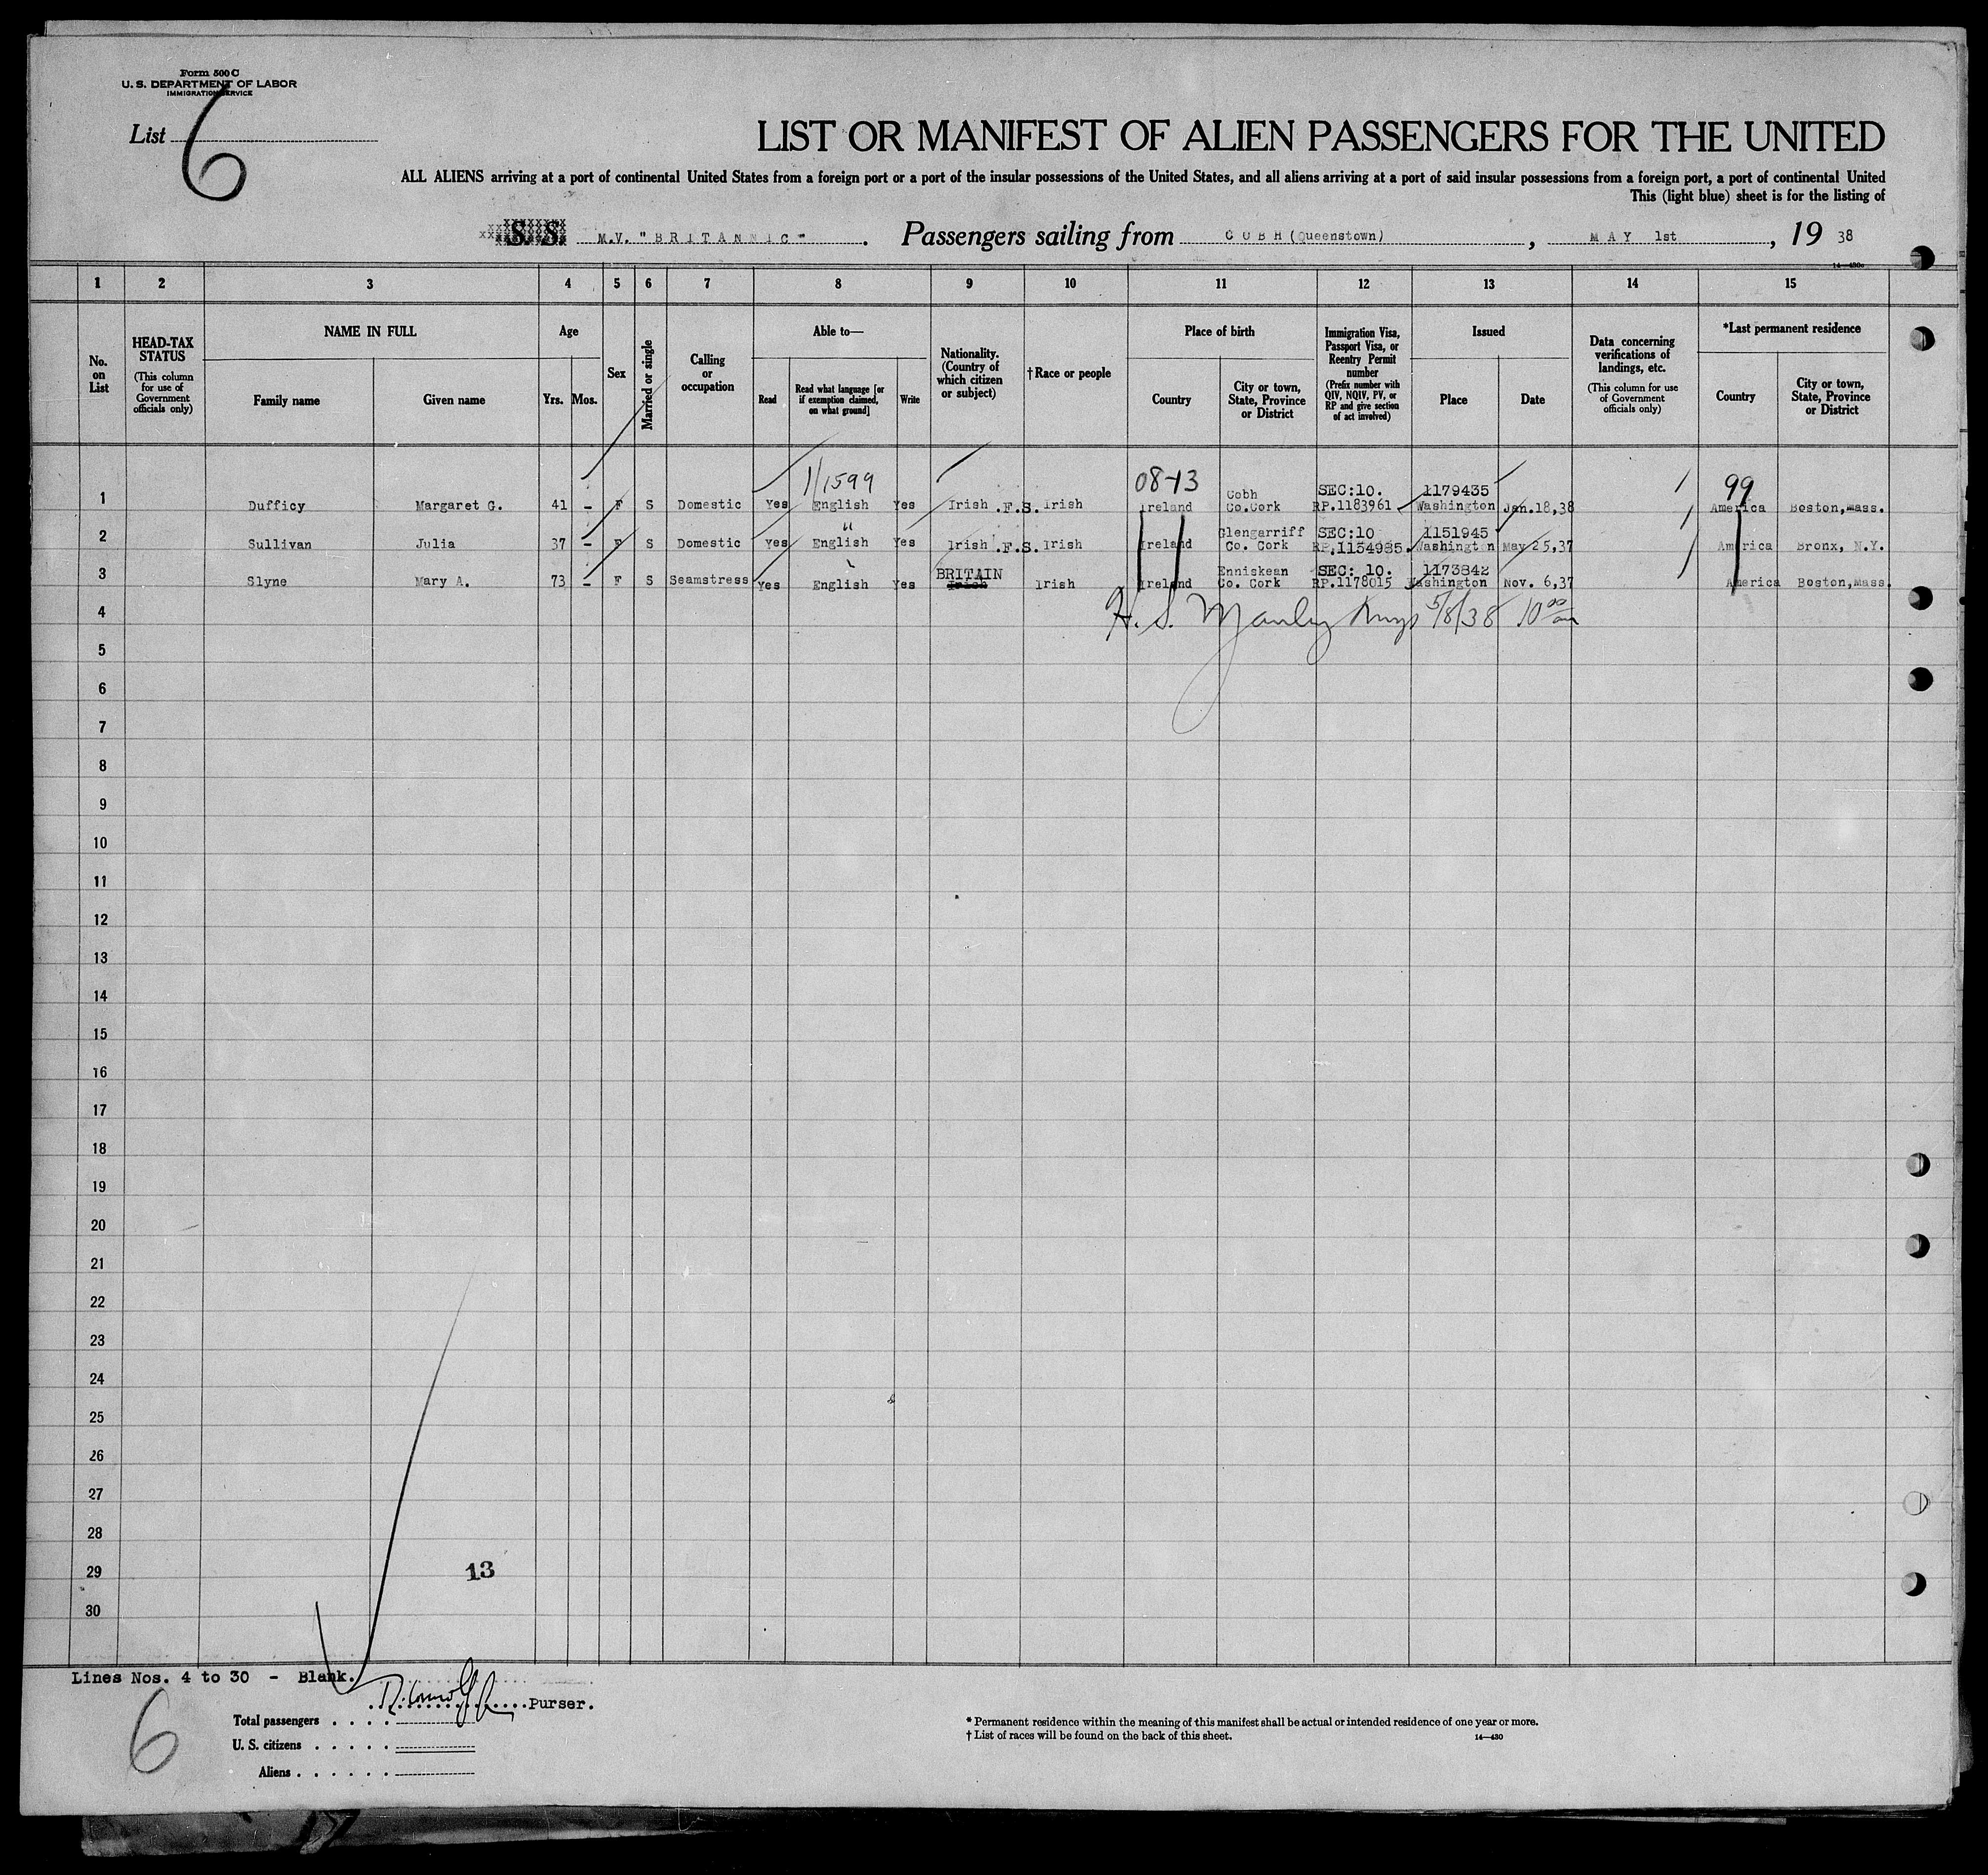 Form 500 C
U. S. DEPARTMENT OF LABOR
IMMIGRATION SERVICE
List 6
LIST OR MANIFEST OF ALIEN PASSENGERS FOR THE UNITED
ALL ALIENS arriving at a port of continental United States from a foreign port or a port of the insular possessions of the United States, and all aliens arriving at a port of said insular possessions from a foreign port, a port of continental United
This (light blue) sheet is for the listing of
S. S. M.V. "BRITANNIC". Passengers sailing from COBH (Queenstown), MAY 1st, 19 38
14—430c
1 2 3 4 5 6 7 8 9 10 11 12 13 14 15
No. on List
HEAD-TAX STATUS
(This column for use of Government officials only)
NAME IN FULL
Family name Given name
Age
Yrs. Mos.
Sex
Married or single
Calling or occupation
Able to—
Read
Read what language [or if exemption claimed, on what ground]
Write
Nationality. (Country of which citizen or subject)
†Race or people
Place of birth
Country
City or town, State, Province or District
Immigration Visa, Passport Visa, or Reentry Permit number
(Prefix number with QIV, NQIV, PV, or RP and give section of act involved)
Issued
Place Date
Data concerning verifications of landings, etc.
(This column for use of Government officials only)
*Last permanent residence
Country
City or town, State, Province or District
1/1599 08-13 99
Cobh SEC:10. 1179435
1 Dufficy Margaret G. 41 - F S Domestic Yes English Yes Irish .F.S. Irish Ireland Co.Cork RP.1183961 Washington Jan.18,38 America Boston, Mass.
" Glengarriff SEC:10 1151945
2 Sullivan Julia 37 - F S Domestic Yes English Yes Irish .F.S. Irish Ireland Co. Cork RP.1154985. Washington May 25,37 America Bronx, N.Y.
BRITAIN Enniskean SEC: 10. 1173842
3 Slyne Mary A. 73 - F S Seamstress Yes English Yes Irish Irish Ireland Co. Cork RP.1178015 Washington Nov. 6,37 America Boston, Mass.
4 H. S. Manley 5/8/38 10 00 am
5
6
7
8
9
10
11
12
13
14
15
16
17
18
19
20
21
22
23
24
25
26
27
28
29 13
30
Lines Nos. 4 to 30 - Blank.
Purser.
6
Total passengers
U. S. citizens
Aliens
* Permanent residence within the meaning of this manifest shall be actual or intended residence of one year or more.
† List of races will be found on the back of this sheet.
14—430